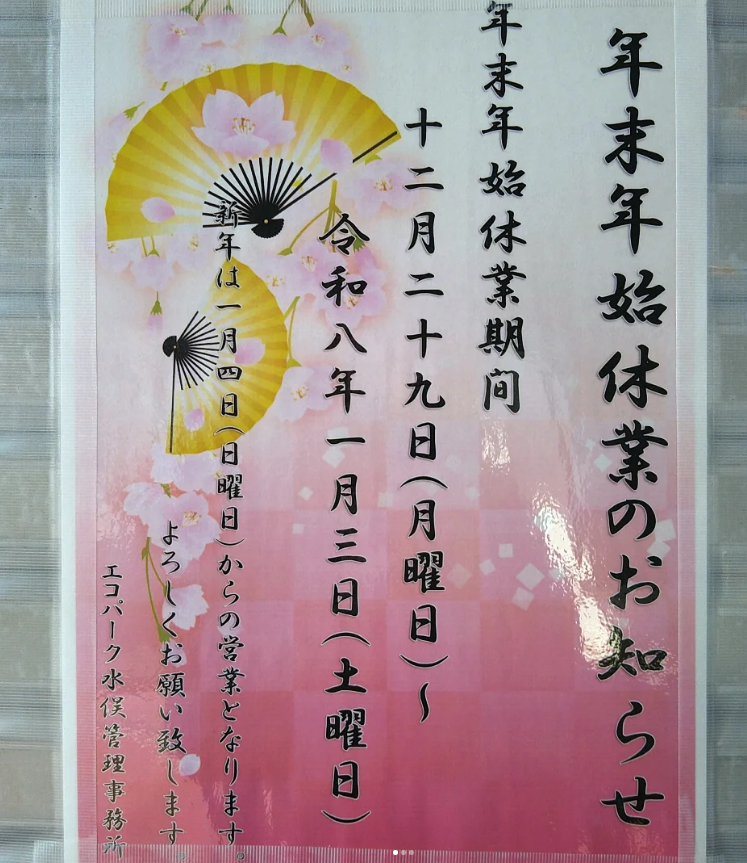 年末年始休業のお知らせ
年末年始休業期间
十二月二十九日(月曜日)～
令和八年一月三日(土曜日)
新年は一月四日(日曜日)からの営業となります。
よろしくお願い致します。
エコパーク水俣管理事務所